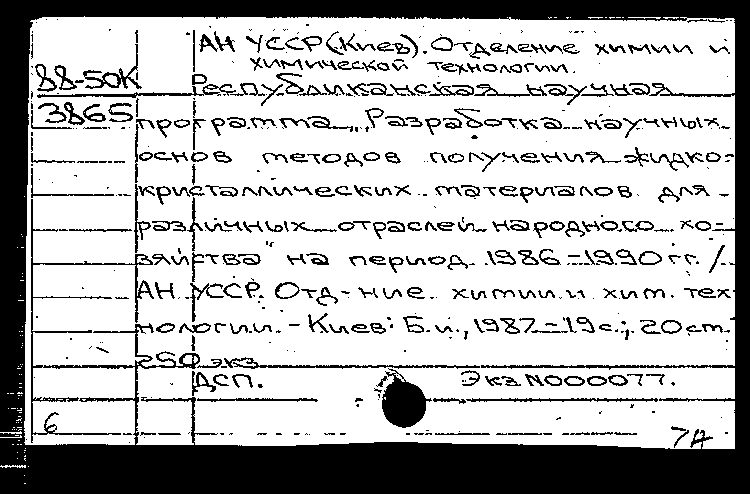 АН УССР (Киев). Отделение химии и
химической технологии.
88-50К Республиканская научная
3865 программа „Разработка научных
основ методов получения жидко-
кристаллических материалов для
различных отраслей народного хо-
зяйства" на период 1986-1990 гг. /
АН УССР. Отд-ние химии и хим. тех
нологии. - Киев: Б.и., 1987 - 19 с.; 20 см.
250 экз
ДСП. Экз N000077.
6 7А